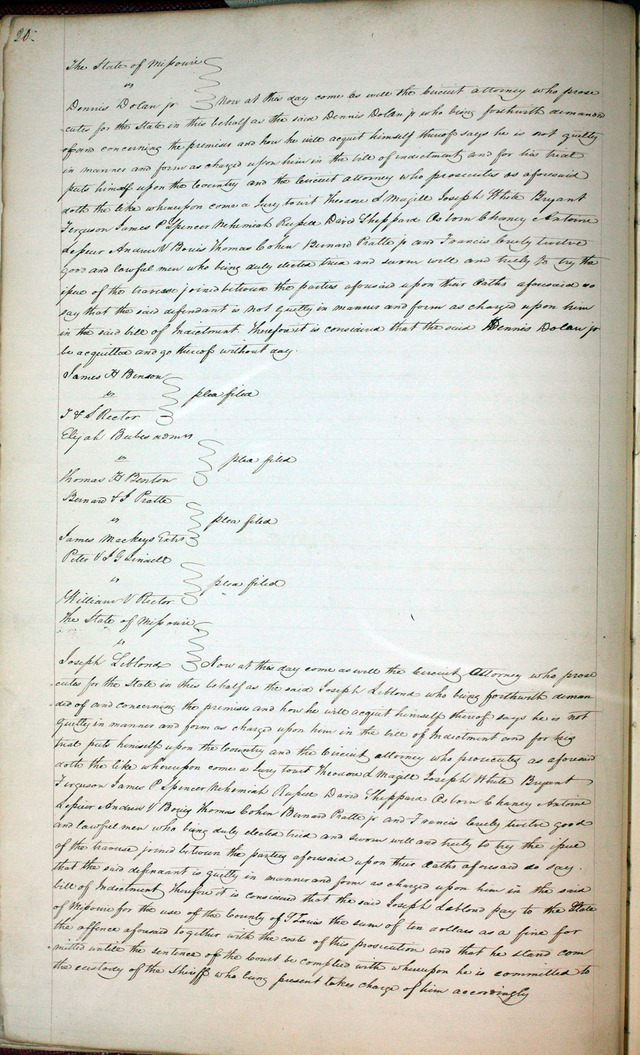 20.
The State of Missouri
vs
Dennis Dolan jr Now at this day come as well the Circuit attorney who prose
cutes for the State in this behalf as the said Dennis Dolan jr who being forthwith deman
of and concerning the premises and how he will acquit himself thereof says he is not guilty
in manner and form as charged upon him in the bill of indictment and for his trial
puts himself upon the Country and the Circuit attorney who prosecutes as aforesaid
doth the like whereupon come a Jury towit Theodore L Magill Joseph White Bryant
Ferguson James P Spencer Nehemiah Rupell David Sheppard Asborn Chaney Antoine
Lepuir Andrew V Bouis Thomas Cohen Bernard Pratte jr and Francis Creely twelve
good and lawful men who being duly elected tried and sworn well and truly to try the
issue of the traverse joined between the parties aforesaid upon their Oaths aforesaid do
say that the said defendant is not guilty in manner and form as charged upon him
in the said bill of Indictment. Therefore it is considered that the said Dennis Dolan jr
be acquitted and go thereof without day.
James H Benson
vs plea filed
T & S Rector
Elijah Beebe admr
vs plea filed
Thomas H Benton
Bernard & J Pratte
vs plea filed
James Mackeys Exrs
Peter & J G Lindell
vs plea filed
William V Rector
The State of Missouri
vs
Joseph Leblond Now at this day come as well the Circuit Attorney who prose
cutes for the State in this behalf as the said Joseph Leblond who being forthwith deman
ded of and concerning the premises and how he will acquit himself thereof says he is not
guilty in manner and form as charge upon him in the bill of Indictment and for his
trial puts himself upon the Country and the Circuit attorney who prosecutes as aforesaid
doth the like whereupon come a Jury towit Theodore L Magill Joseph White Bryant
Ferguson James P Spencer Nehemiah Rupell David Sheppard Asborn Chaney Antoine
Lepuir Andrew V Bouis Thomas Cohen Bernard Pratte jr and Francis Creely twelve good
and lawful men who being duly elected tried and sworn well and truly to try the issue
of the traverse joined between the parties aforesaid upon their Oaths aforesaid do say
that the said defendant is guilty in manner and form as charged upon him in the said
bill of Indictment Therefore it is considered that the said Joseph Leblond pay to the State
of Missouri for the use of the County of St Louis the sum of ten dollars as a fine for
the offence aforesaid together with the costs of this prosecution and that he stand com
mitted untill the sentence of the Court be complied with whereupon he is committed to
the custody of the Sheriff who being present takes charge of him accordingly